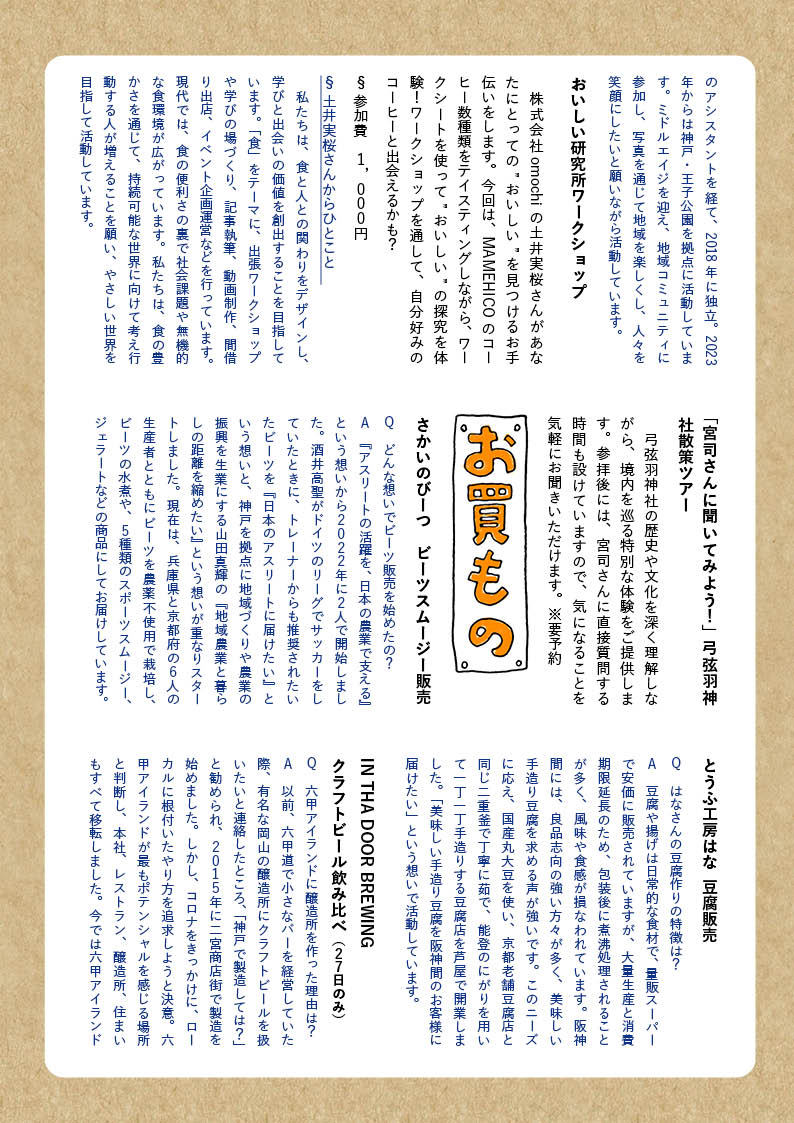 のアシスタントを経て、2018年に独立。2023
年からは神戸・王子公園を拠点に活動していま
す。ミドルエイジを迎え、地域コミュニティに
参加し、写真を通じて地域を楽しくし、人々を
笑顔にしたいと願いながら活動しています。
おいしい研究所ワークショップ
株式会社omochiの土井実桜さんがあな
たにとっての"おいしい"を見つけるお手
伝いをします。今回は、MAMEHICOのコー
ヒー数種類をテイスティングしながら、ワー
クシートを使って"おいしい"の探究を体
験！ワークショップを通して、自分好みの
コーヒーと出会えるかも？
§ 参加費 1,000円
§ 土井実桜さんからひとこと
私たちは、食と人との関わりをデザインし、
学びと出会いの価値を創出することを目指して
います。「食」をテーマに、出張ワークショップ
や学びの場づくり、記事執筆、動画制作、間借
り出店、イベント企画運営などを行っています。
現代では、食の便利さの裏で社会課題や無機的
な食環境が広がっています。私たちは、食の豊
かさを通じて、持続可能な世界に向けて考え行
動する人が増えることを願い、やさしい世界を
目指して活動しています。
「宮司さんに聞いてみよう！」弓弦羽神
社散策ツアー
弓弦羽神社の歴史や文化を深く理解しな
がら、境内を巡る特別な体験をご提供しま
す。参拝後には、宮司さんに直接質問する
時間も設けていますので、気になることを
気軽にお聞きいただけます。※要予約
お買もの
さかいのびーつ ビーツスムージー販売
Q どんな想いでビーツ販売を始めたの？
A 『アスリートの活躍を、日本の農業で支える』
という想いから2022年に2人で開始しまし
た。酒井高聖がドイツのリーグでサッカーをし
ていたときに、トレーナーからも推奨されてい
たビーツを『日本のアスリートに届けたい』と
いう想いと、神戸を拠点に地域づくりや農業の
振興を生業にする山田真輝の『地域農業と暮ら
しの距離を縮めたい』という想いが重なりスター
トしました。現在は、兵庫県と京都府の6人の
生産者とともにビーツを農薬不使用で栽培し、
ビーツの水煮や、5種類のスポーツスムージー、
ジェラートなどの商品にしてお届けしています。
とうふ工房はな 豆腐販売
Q はなさんの豆腐作りの特徴は？
A 豆腐や揚げは日常的な食材で、量販スーパー
で安価に販売されていますが、大量生産と消費
期限延長のため、包装後に煮沸処理されること
が多く、風味や食感が損なわれています。阪神
間には、良品志向の強い方々が多く、美味しい
手造り豆腐を求める声が強いです。このニーズ
に応え、国産丸大豆を使い、京都老舗豆腐店と
同じ二重釜で丁寧に茹で、能登のにがりを用い
て一丁一丁手造りする豆腐店を芦屋で開業しま
した。「美味しい手造り豆腐を阪神間のお客様に
届けたい」という想いで活動しています。
IN THA DOOR BREWING
クラフトビール飲み比べ（27日のみ）
Q 六甲アイランドに醸造所を作った理由は？
A 以前、六甲道で小さなバーを経営していた
際、有名な岡山の醸造所にクラフトビールを扱
いたいと連絡したところ、「神戸で製造しては？」
と勧められ、2015年に二宮商店街で製造を
始めました。しかし、コロナをきっかけに、ロー
カルに根付いたやり方を追求しようと決意。六
甲アイランドが最もポテンシャルを感じる場所
と判断し、本社、レストラン、醸造所、住まい
もすべて移転しました。今では六甲アイランド